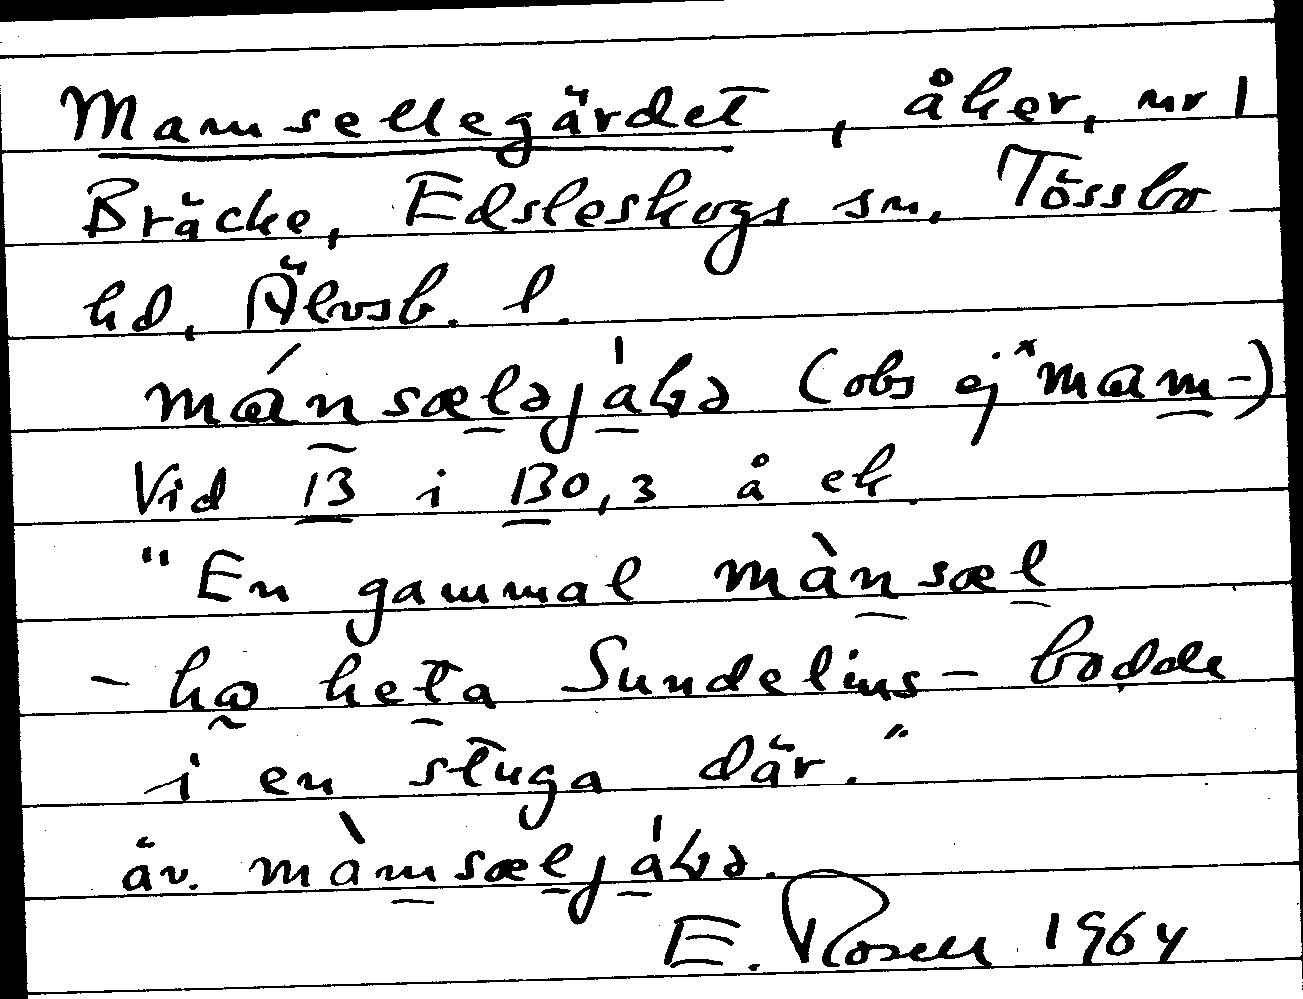 Mamsellegärdet, åker, nr 1
Bräcke, Edsleskogs sn, Tössbo
hd, Älvsb. l.
mánsælǝjáɫǝ (obs ej *mam-)
Vid 13 i 130,3 å ek.
"En gammal mànsæl
- ha heta Sundelius - bodde
i en stuga där."
äv. màmsæljáɫǝ.
E. Rosell 1964